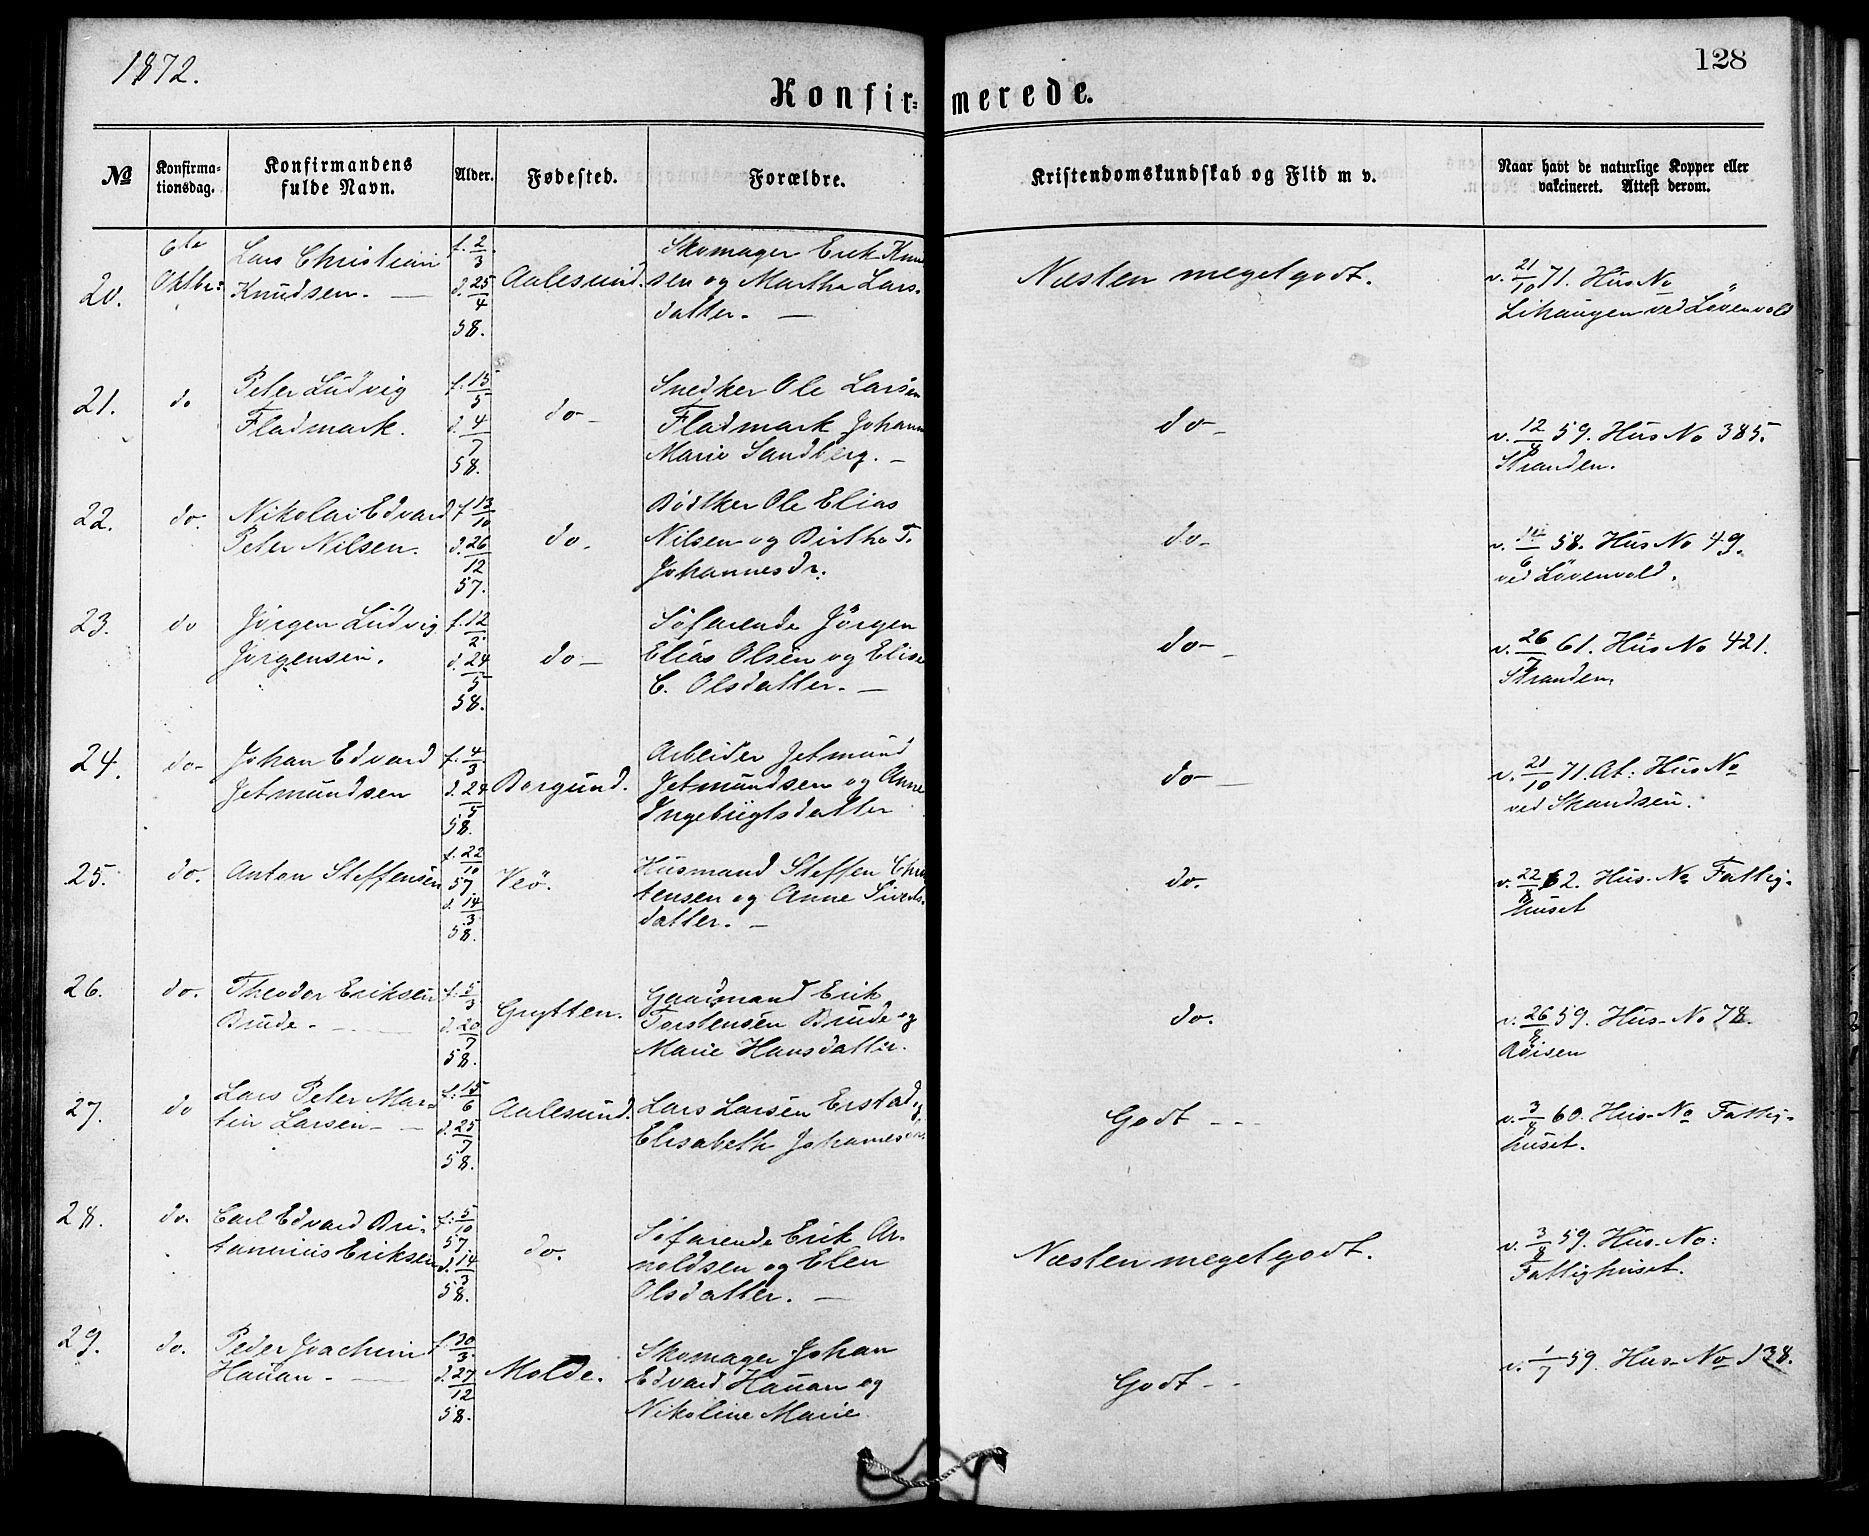 1872.
128
Konfirmerede.
№
Konfirmationsdag.
Konfirmandens fulde Navn.
Alder.
Fødested.
Forældre.
Kristendomskundskab og Flid m v.
Naar havt de naturlige Kopper eller vakcineret. Attest derom.
20. 6te Oktbr: Lars Christian Knudsen. — f. 2/3 d. 25/4 58. Aalesund. Skomager Erik Knudsen og Martha Larsdatter. — Næsten meget godt. v. 21/10 71. Hus No Lihaugen ved Løvenvold
21. do Peter Ludvig Fladmark. f. 15/5 d. 4/7 58. do- Snedker Ole Larsen Fladmark Johanne Marie Sandberg. — do- v. 12/8 59. Hus No 385. Stranden.
22. do. Nikolai Edvard Peter Nilsen. f. 13/10 d. 26/12 57. do. Bødtker Ole Elias Nilsen og Birthe T. Johannesdr. do- v. 14/6 58. Hus No 49. ved Løvenvold.
23. do Jørgen Ludvig Jørgensen. f. 12/2 d. 24/5 58. do- Søfarende Jørgen Elias Olsen og Elise C. Olsdatter. — do- v. 26/7 61. Hus No 421. Stranden.
24. do- Johan Edvard Jetmundsen f. 4/3 d. 24/5 58. Borgund. Arbeider Jetmund Jetmundsen og Anne Ingebrigtsdatter do- v. 21/10 71. At: Hus No ved Skandsen.
25. do. Anton Steffensen f. 22/10 57. d. 14/3 58. Veö. Husmand Steffen Christensen og Anne Sivertsdatter. — do. v. 22/8 62. Hus-No Fattighuset
26. do. Theodor Eriksen Brude. — f. 5/3 d. 20/7 58. Grytten. Gaardmand Erik Torstensen Brude og Marie Hansdatter. do. v. 26/8 59. Hus-No 78. Röisen
27. do Lars Peter Martin Larsen — f. 15/6 d. 25/7 58. Aalesund. Lars Larsen Erstad og Elisabeth Johannesen Godt — v. 3/8 60. Hus-No Fattighuset.
28. do. Carl Edvard Britannius Eriksen f. 5/10 57 d. 14/3 58. do. Søfarende Erik Arnoldsen og Elen Olsdatter. — Næsten meget godt. v. 3/8 59. Hus-No: Fattighuset.
29. do. Peder Joachim Hauan. — f. 30/3. d. 27/12 58. Molde. Skomager Johan Edvard Hauan og Nikoline Marie Godt — v. 1/7 59. Hus-No 138.